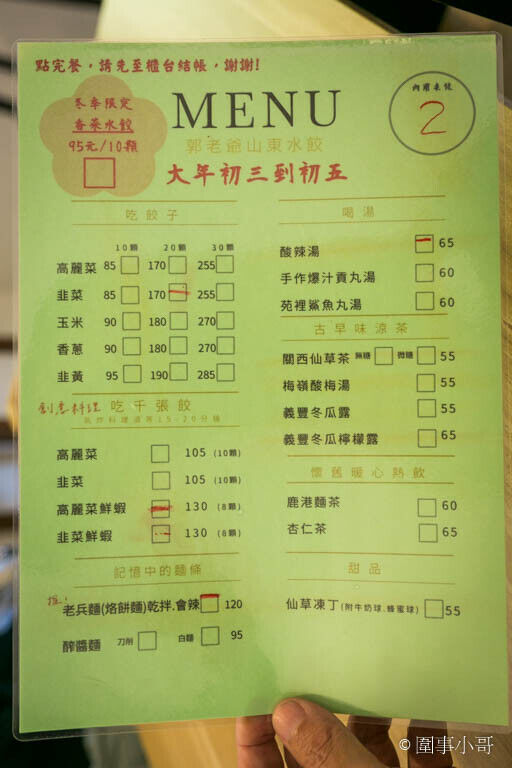 點完餐，請先至櫃台結帳，謝謝!
冬季限定
香菜水餃
95元/10顆
MENU
郭老爺山東水餃
大年初三到初五
內用桌號
2
吃餃子
10顆 20顆 30顆
高麗菜 85 170 255
韭菜 85 170 255
玉米 90 180 270
香蔥 90 180 270
韭黃 95 190 285
創意料理 吃千張餃
氣炸料理須等15-20分鐘
高麗菜 105 (10顆)
韭菜 105 (10顆)
高麗菜鮮蝦 130 (8顆)
韭菜鮮蝦 130 (8顆)
記憶中的麵條
推!
老兵麵(烙餅麵)乾拌.會辣 120
醡醬麵 刀削 白麵 95
喝湯
酸辣湯 65
手作爆汁貢丸湯 60
苑裡鯊魚丸湯 60
古早味涼茶
關西仙草茶 無糖 微糖 55
梅嶺酸梅湯 55
義豐冬瓜露 55
義豐冬瓜檸檬露 65
懷舊暖心熱飲
鹿港麵茶 60
杏仁茶 65
甜品
仙草凍丁(附牛奶球.蜂蜜球) 55
© 圍事小哥